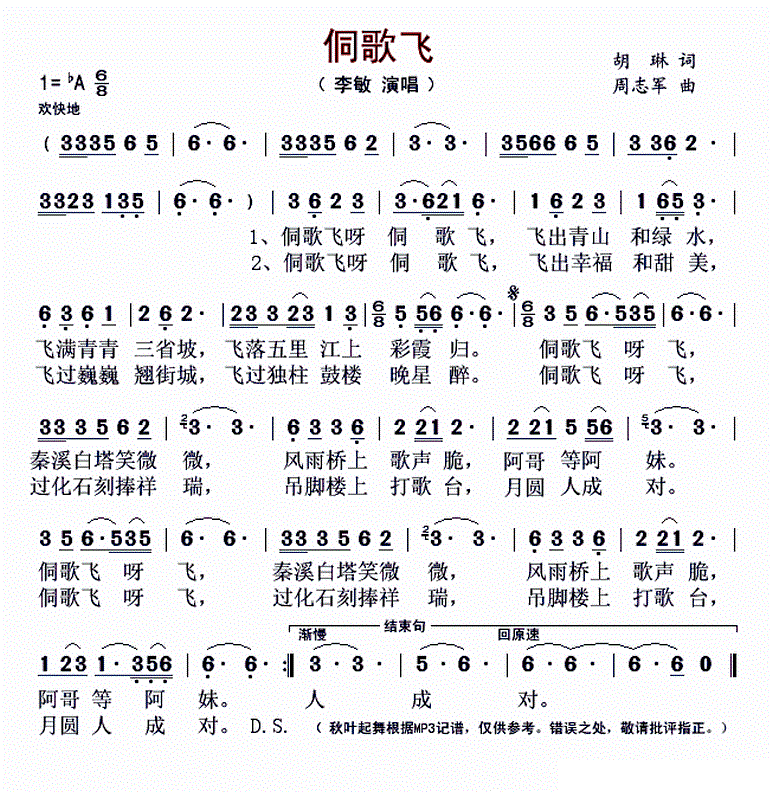 侗歌飞
（ 李敏 演唱 ）
胡 琳 词
周志军 曲
1= ♭A 6/8
欢快地
( 3335 6 5 | 6· 6· | 3335 6 2 | 3· 3· | 3566 6 5 | 3 36 2· |
3323 135 | 6· 6· ) | 3 6 2 3 | 3·621 6· | 1 6 2 3 | 1 65 3· |
1、侗歌飞呀 侗 歌 飞， 飞出青山 和绿 水，
2、侗歌飞呀 侗 歌 飞， 飞出幸福 和甜 美，
6 3 6 1 | 2 6 2· | 23 323 1 3 | 6/8 5 56 6· 6· | 6/8 3 5 6·535 | 6· 6· |
飞满青青 三省坡， 飞落五里 江上 彩霞 归。 侗歌飞 呀 飞，
飞过巍巍 翘街城， 飞过独柱 鼓楼 晚星 醉。 侗歌飞 呀 飞，
33 3 5 6 2 | 2 3· 3· | 6 3 3 6 | 2 21 2· | 2 21 5 56 | 5 3· 3· |
秦溪白塔笑微 微， 风雨桥上 歌声 脆， 阿哥 等阿 妹。
过化石刻捧祥 瑞， 吊脚楼上 打歌 台， 月圆 人成 对。
3 5 6·535 | 6· 6· | 33 3 5 6 2 | 2 3· 3· | 6 3 3 6 | 2 21 2· |
侗歌飞 呀 飞， 秦溪白塔笑微 微， 风雨桥上 歌声 脆，
侗歌飞 呀 飞， 过化石刻捧祥 瑞， 吊脚楼上 打歌 台，
渐慢 结束句 回原速
1 23 1·356 | 6· 6· :‖ 3· 3· | 5· 6· | 6· 6· | 6· 6 0 ‖
阿哥 等 阿 妹。 人 成 对。
月圆 人 成 对。 D.S. （ 秋叶起舞根据MP3记谱，仅供参考。错误之处，敬请批评指正。）